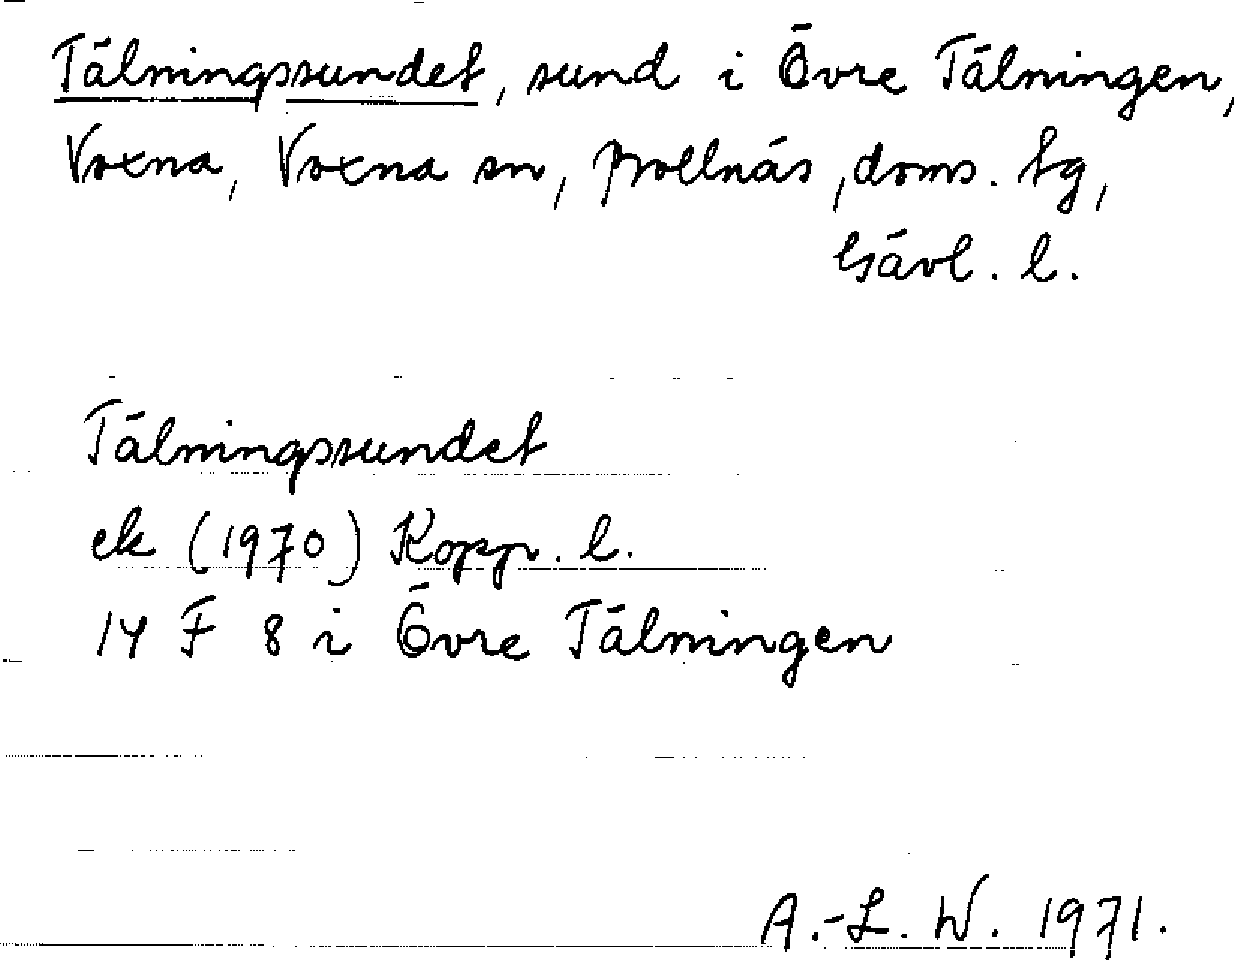 Tälningssundet, sund i Övre Tälningen,
Voxna, Voxna sn, Bollnäs, doms. tg,
Gävl. l.
Tälningssundet
ek (1970) Kopp. l.
14 F 8 i Övre Tälningen
A.-L. W. 1971.